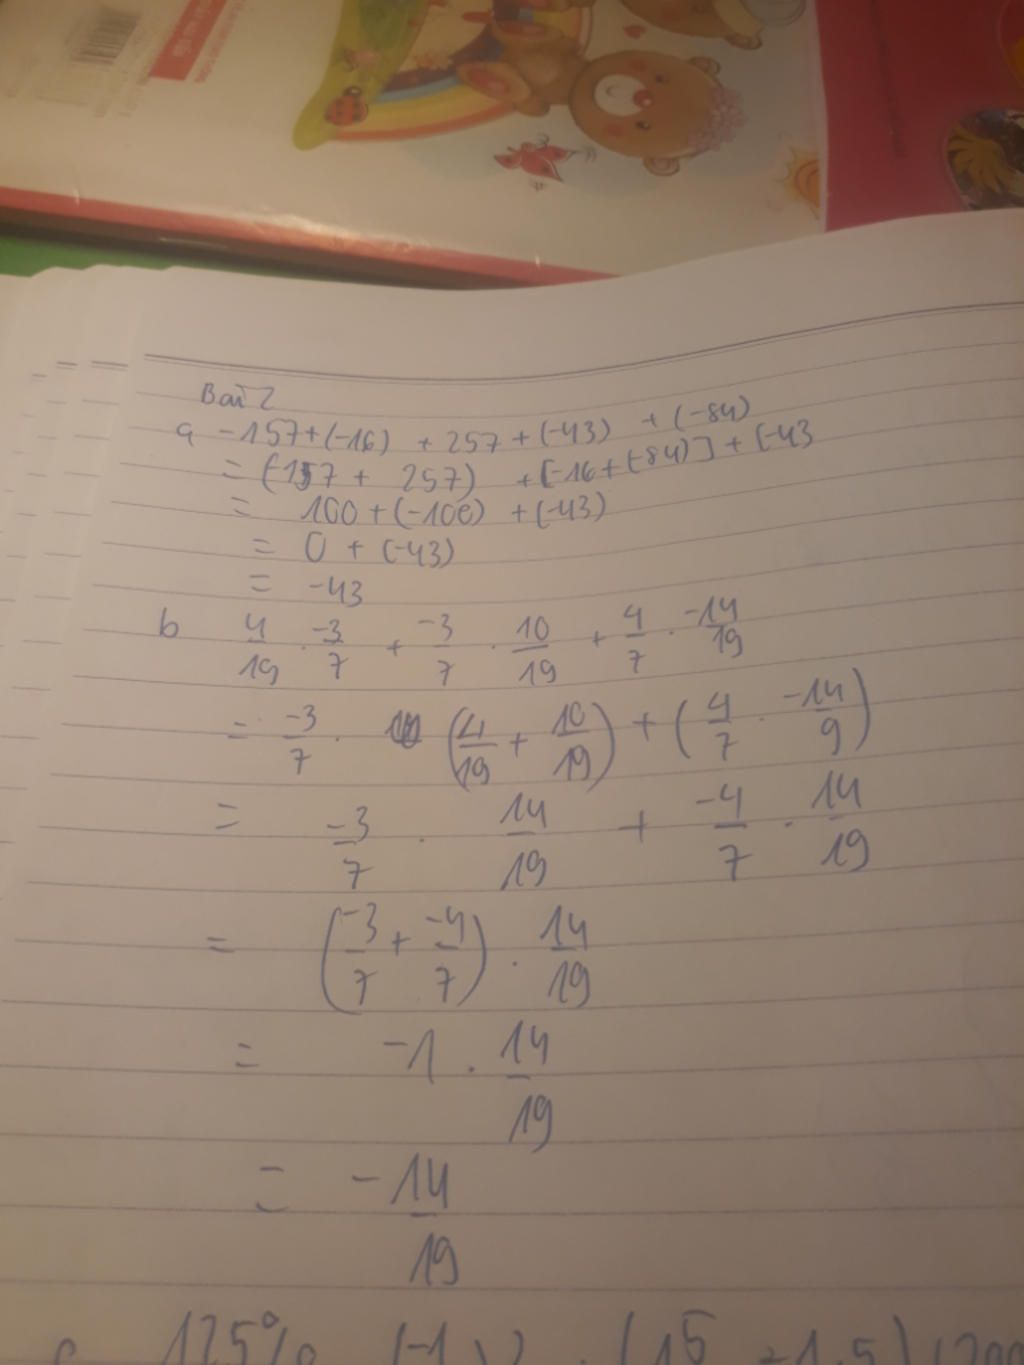 Bài 2
a -157+(-16) + 257 + (-43) + (-84)
= (-157 + 257) + [-16 + (-84)] + (-43
= 100 + (-100) + (-43)
= 0 + (-43)
= -43
b 4/19 . -3/7 + -3/7 . 10/19 + 4/7 . -14/19
= -3/7 . (4/19 + 10/19) + (4/7 . -14/9)
= -3/7 . 14/19 + -4/7 . 14/19
= (-3/7 + -4/7) . 14/19
= -1 . 14/19
= -14/19
c 125%